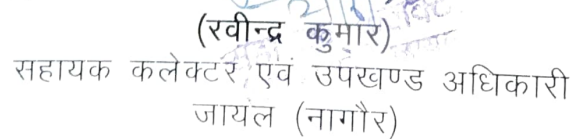 (रवीन्द्र कुमार)
सहायक कलेक्टर एवं उपखण्ड अधिकारी
जायल (नागौर)